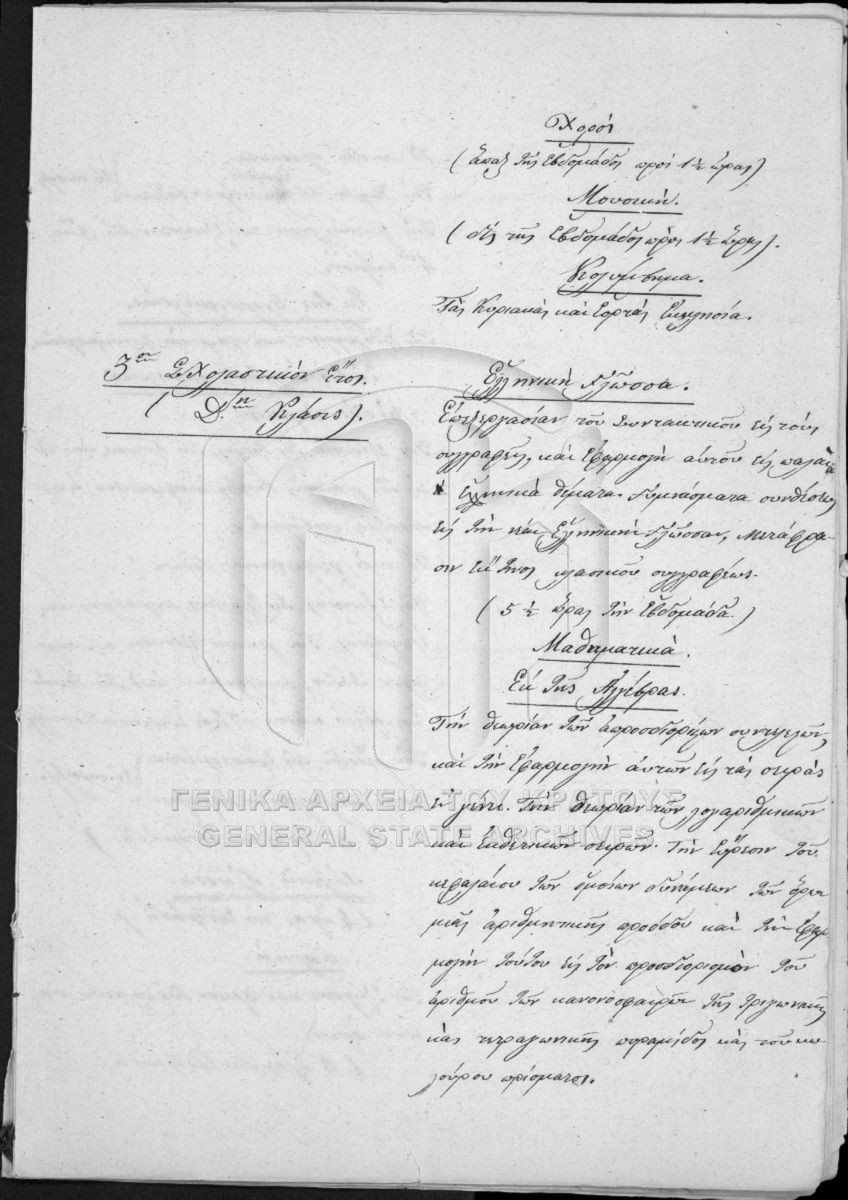 Χορός
(ἅπαξ τῆς Ἑβδομάδος πρὸς 1 ½ ὥρας)
Μουσική.
(δὶς τῆς Ἑβδομάδος πρὸς 1 ½ ὥρας).
Κολύμβημα.
Τὰς Κυριακὰς καὶ Ἑορτὰς Ἐκκλησία.
3ον Σχολαστικὸν Ἔτος.
(Δ.η Κλάσις).
Ἑλληνικὴ Γλῶσσα.
Ἐπεξεργασίαν τοῦ Συντακτικοῦ εἰς τοὺς
συγγραφεῖς, καὶ ἐφαρμογὴ αὐτοῦ εἰς παλαιὰ
Ἑλληνικὰ θέματα. Γυμνάσματα συνθέσεως
εἰς τὴν νέαν Ἑλληνικὴν Γλῶσσαν, Μετάφρα-
σιν ἐκ τινος κλασικοῦ συγγραφέως.
(5 ½ ὥρας τὴν Ἑβδομάδα.)
Μαθηματικὰ.
Ἐκ τῆς Ἀλγέβρας.
Τὴν θεωρίαν τῶν ἀπροσδιορίστων συντελεστῶν,
καὶ τὴν ἐφαρμογὴν αὐτῶν εἰς τὰς σειρὰς
ἐν γένει. Τὴν θεωρίαν τῶν λογαριθμικῶν
καὶ ἐκθετικῶν σειρῶν. Τὴν εὕρεσιν τοῦ
κεφαλαίου τῶν ὁμοίων δυνάμεων τῶν ὅρων
μιᾶς ἀριθμητικῆς προόδου καὶ τὴν ἐφαρ-
μογὴν τούτου εἰς τὸν προσδιορισμὸν τοῦ
ἀριθμοῦ τῶν κανονοσφαιρῶν τῆς τριγωνικῆς
καὶ τετραγωνικῆς πυραμίδος καὶ τοῦ κο-
λούρου πρίσματος.
ΓΕΝΙΚΑ ΑΡΧΕΙΑ ΤΟΥ ΚΡΑΤΟΥΣ
GENERAL STATE ARCHIVES